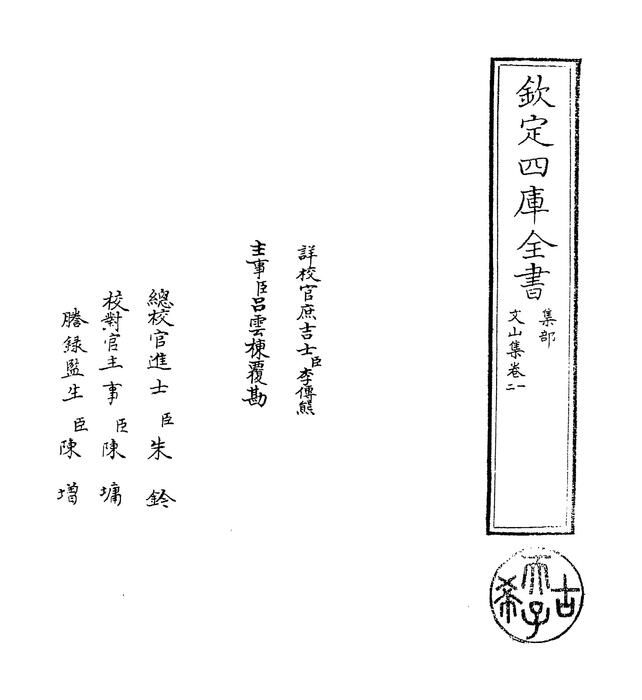 欽定四庫全書
集部
文山集卷一二
古希天子
詳校官庶吉士臣李傳熊
主事臣呂雲棟覆勘
總校官進士臣朱鈐
校對官主事臣陳墉
謄錄監生臣陳增